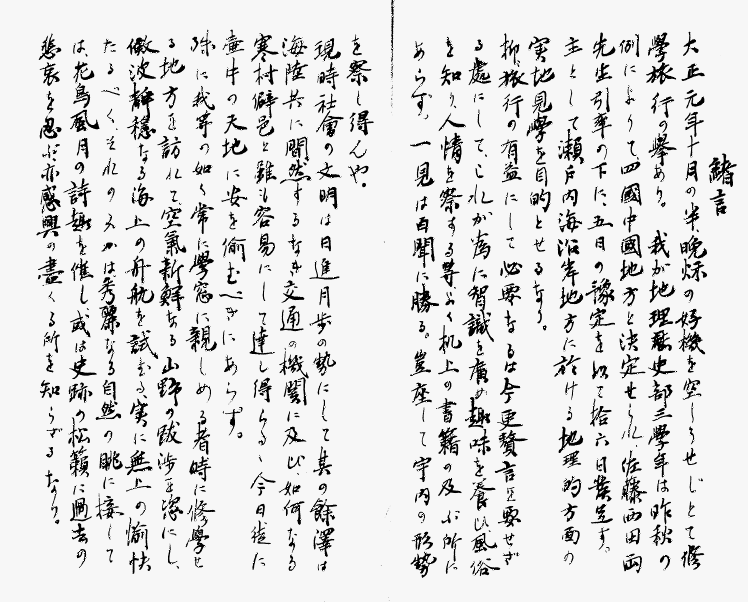 緒言
大正元年十月の半、晩秌の好機を空しうせじとて修
學旅行の擧あり。我が地理歴史部三學年は昨秋の
例によりて、四國中國地方と決定せられ、佐藤西田両
先生引率の下に、五日の豫定を以て拾六日發足す。
主として瀬戸内海沿岸地方に於ける地理的方面の
実地見學を目的とせるなり。
抑、旅行の有益にして必要なるは今更贅言を要せざ
る處にして、これが為に智識を廣め趣味を養ひ風俗
を知り、人情を察する等よく机上の書籍の及ぶ所に
あらず。一見は百聞に勝る。豈座して宇内の形勢
を察し得んや。
現時社會の文明は日進月歩の勢にして其の餘澤は
海陸共に間然するなき交通の機関に及び、如何なる
寒村僻邑と雖も容易にして達し得らるゝ今日徒に
壷中の天地に安を偷むべきにあらず。
殊に我等の如く常に學窓に親しめる者時に修學せ
る地方を訪れて空氣新鮮なる山野の跋渉を恣にし、
微波静穏なる海上の舟航を試むる、実に無上の愉快
たるべく、それのみかは秀麗なる自然の眺に接して
は、花鳥風月の詩趣を催し或は史跡の松籟に過去の
悲哀を忍ぶ亦感興の盡くる所を知らざるなり。